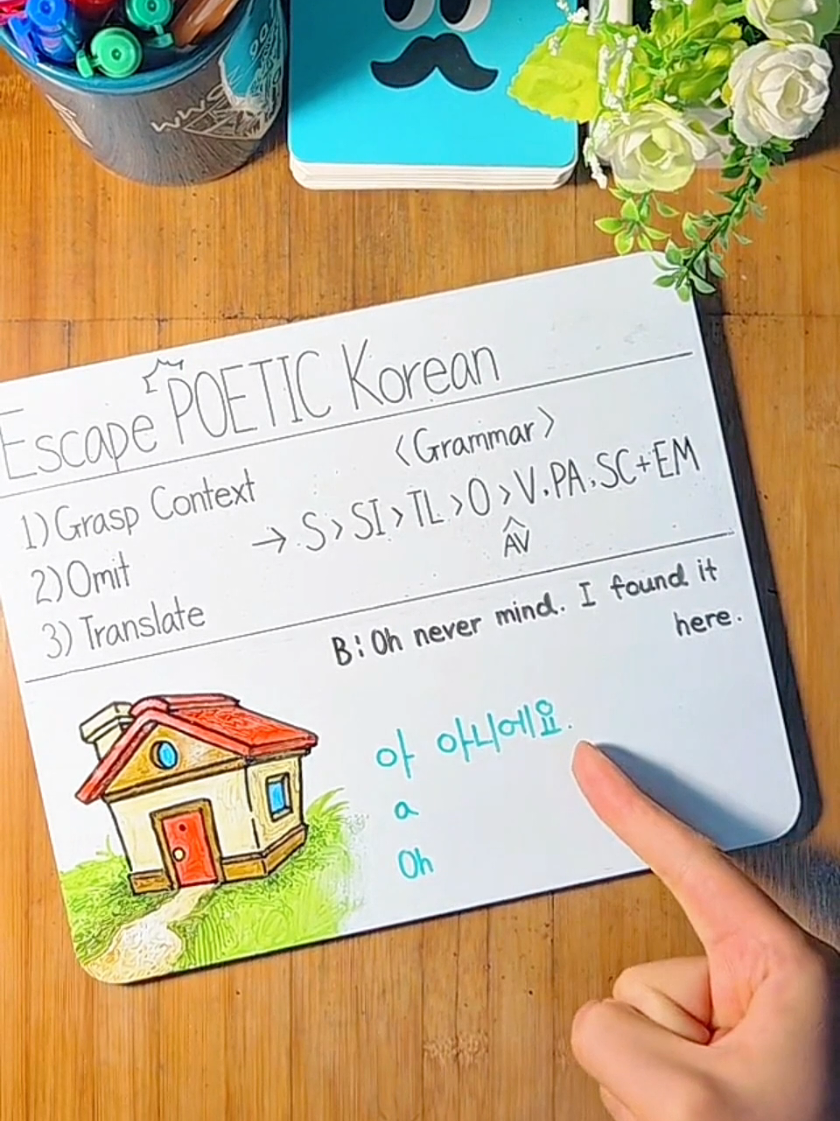 Escape POETIC Korean
1) Grasp Context
2) Omit
3) Translate
<Grammar>
→ S > SI > TL > O > V. PA. SC + EM
AV
B: Oh never mind. I found it
here.
아 아니에요.
a
Oh